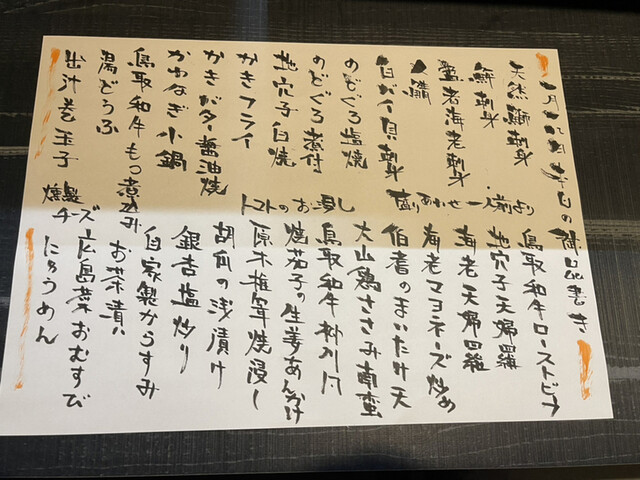 一月八日 本日の御品書き
天然鰤刺身
鮃刺身
盛り合わせ一人前より
人鍋
白バイ貝刺身
のどぐろ塩焼
のどぐろ煮付
地穴子白焼
かきフライ
かきバター醤油焼
かわはぎ小鍋
鳥取和牛もつ煮込み
湯どうふ
出汁巻玉子
燻製チーズ
鳥取和牛ローストビーフ
地穴子天婦羅
海老天婦羅
海老マヨネーズ炒め
伯耆のまいたけ天
大山鶏ささみ南蛮
鳥取和牛串揚げ
トマトのお浸し
焼茄子の生姜あんかけ
原木椎茸焼浸し
胡瓜の浅漬け
銀杏塩炒り
自家製からすみ
お茶漬け
広島菜おむすび
にゅうめん